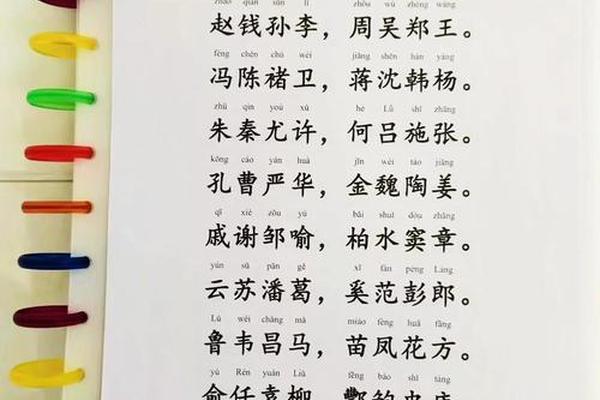 zhào qián sūn lǐ zhōu wú zhèng wáng
赵钱孙李，周吴郑王。
féng chén chǔ wèi jiǎng shěn hán yáng
冯陈褚卫，蒋沈韩杨。
zhū qín yóu xǔ hé Lǚ shī zhāng
朱秦尤许，何吕施张。
kǒng cáo yán huà jīn wèi táo jiāng
孔曹严华，金魏陶姜。
qī xiè zōu yú bǎi shuǐ dòu zhāng
戚谢邹喻，柏水窦章。
yún sū pān gě xī fàn péng Láng
云苏潘葛，奚范彭郎。
Lǔ wéi chāng mǎ miáo fèng huā fāng
鲁韦昌马，苗凤花方。
yú Rén yuán Liǔ fēng bào shǐ táng
俞任袁柳，酆鲍史唐